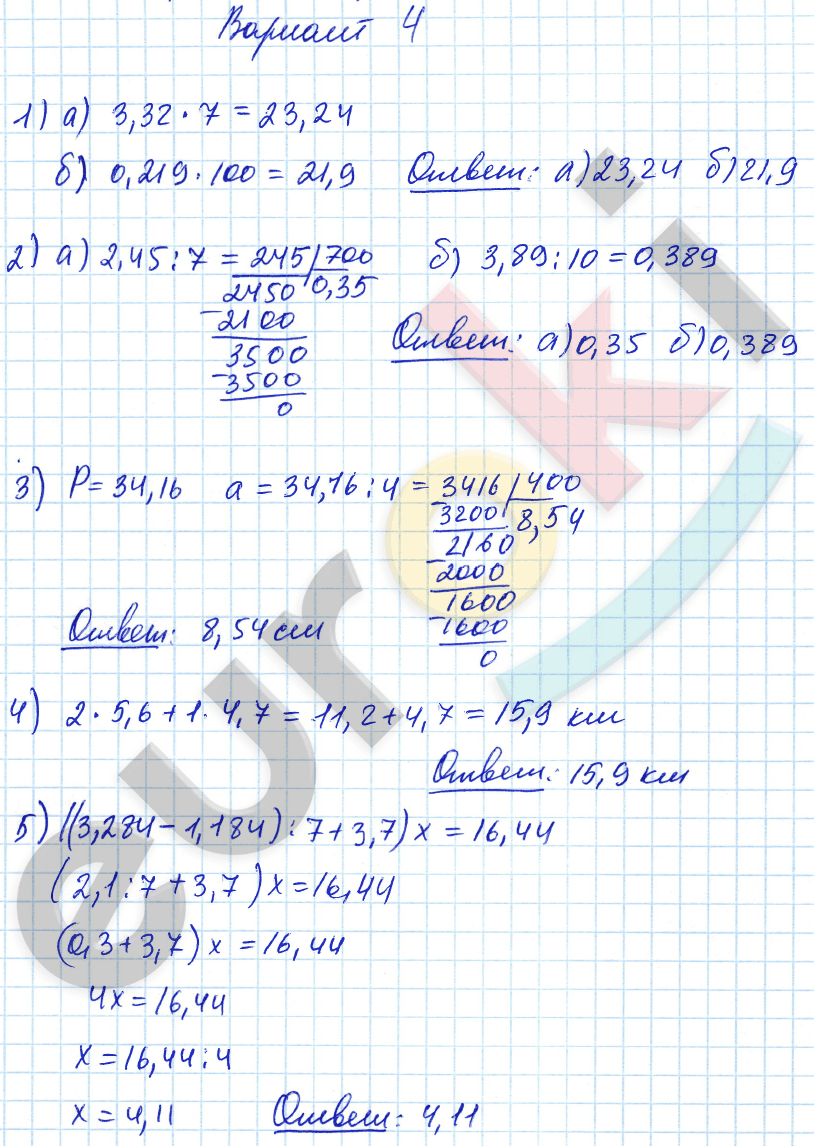 Вариант 4
1) а) 3,32 · 7 = 23,24
б) 0,219 · 100 = 21,9 Ответ: а) 23,24 б) 21,9
2) а) 2,45 : 7 = 245 | 700 б) 3,89 : 10 = 0,389
2450 0,35
- 2100
3500 Ответ: а) 0,35 б) 0,389
- 3500
0
3) P = 34,16 a = 34,16 : 4 = 3416 | 400
- 3200 8,54
2160
- 2000
1600
Ответ: 8,54 см - 1600
0
4) 2 · 5,6 + 1 · 4,7 = 11,2 + 4,7 = 15,9 км
Ответ: 15,9 км
5) ((3,284 - 1,184) : 7 + 3,7) x = 16,44
(2,1 : 7 + 3,7) x = 16,44
(0,3 + 3,7) x = 16,44
4x = 16,44
x = 16,44 : 4
x = 4,11 Ответ: 4,11
euroki